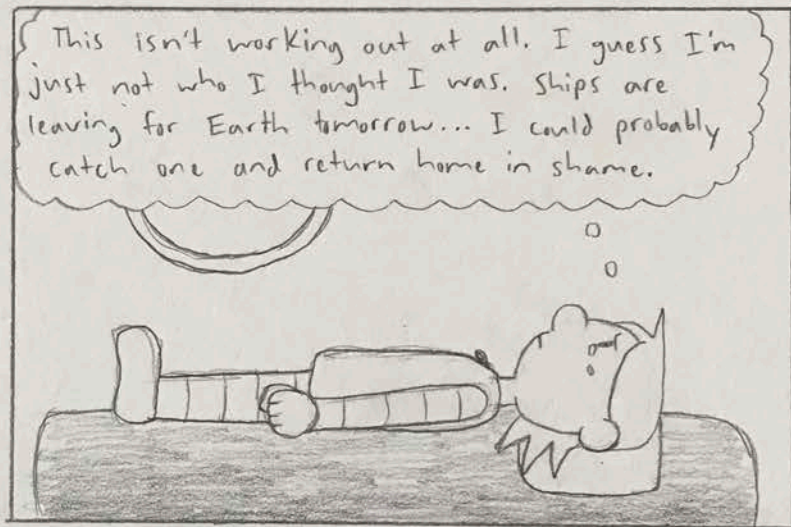 This isn't working out at all. I guess I'm
just not who I thought I was. Ships are
leaving for Earth tomorrow... I could probably
catch one and return home in shame.